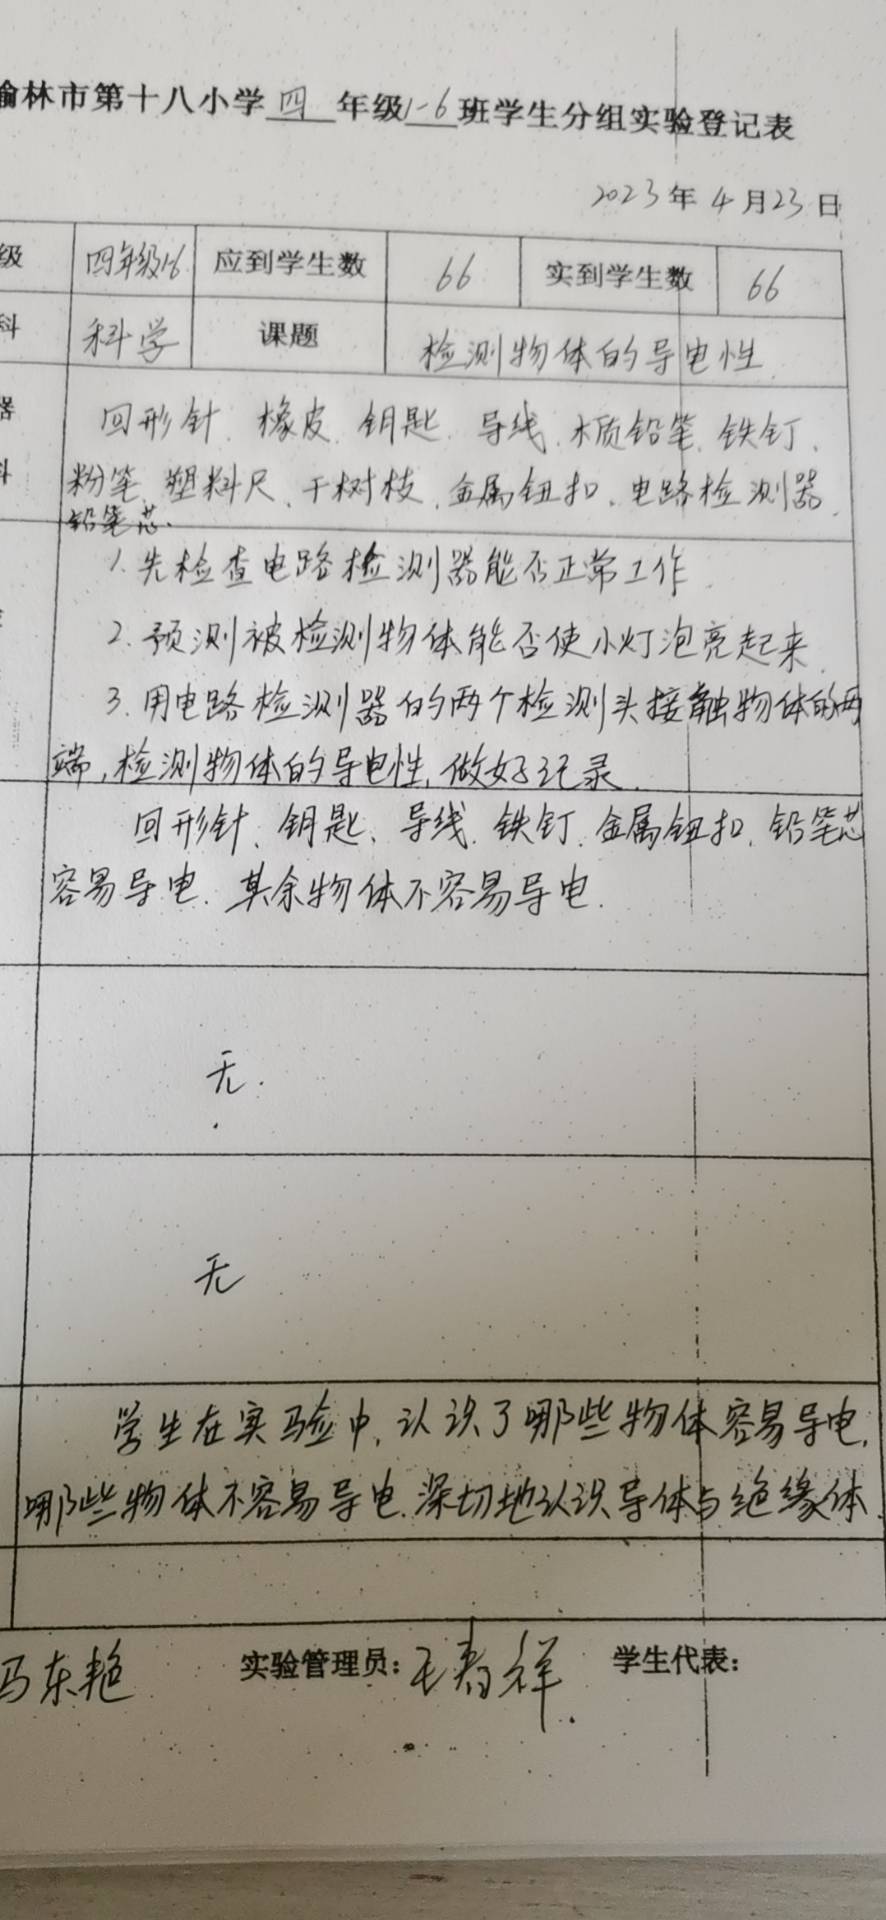 榆林市第十八小学四年级1-6班学生分组实验登记表
2023年4月23日
级 四年级1-6 应到学生数 66 实到学生数 66
科 科学 课题 检测物体的导电性
器 回形针、橡皮、钥匙、导线、木质铅笔、铁钉、
料 粉笔、塑料尺、干树枝、金属钮扣、电路检测器、
铅笔芯.
1.先检查电路检测器能否正常工作.
2.预测被检测物体能否使小灯泡亮起来.
3.用电路检测器的两个检测头接触物体的两
端,检测物体的导电性,做好记录.
回形针、钥匙、导线、铁钉、金属钮扣、铅笔芯
容易导电.其余物体不容易导电.
无.
无
学生在实验中,认识了哪些物体容易导电,
哪些物体不容易导电.深切地认识导体与绝缘体.
马东艳 实验管理员: 祥. 学生代表: